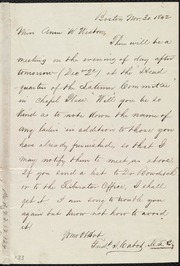 Boston Nov. 30 1842
Miss Anne W. Weston,
There will be a
meeting in the evening of day after
tomorrow - (Dec 2d) at the Head
quarters of the Latimer Committee
in Chapel Place. Will you be so
kind as to note down the names of
any ladies in addition to those you
have already furnished so that I
may notify them to meet as above.
If you will send a list to Dr Bowditch
or to the Liberator Office, I shall
get it. I am sorry to trouble you
again but know not how to avoid
it.
Your
Fred. S. Cabot